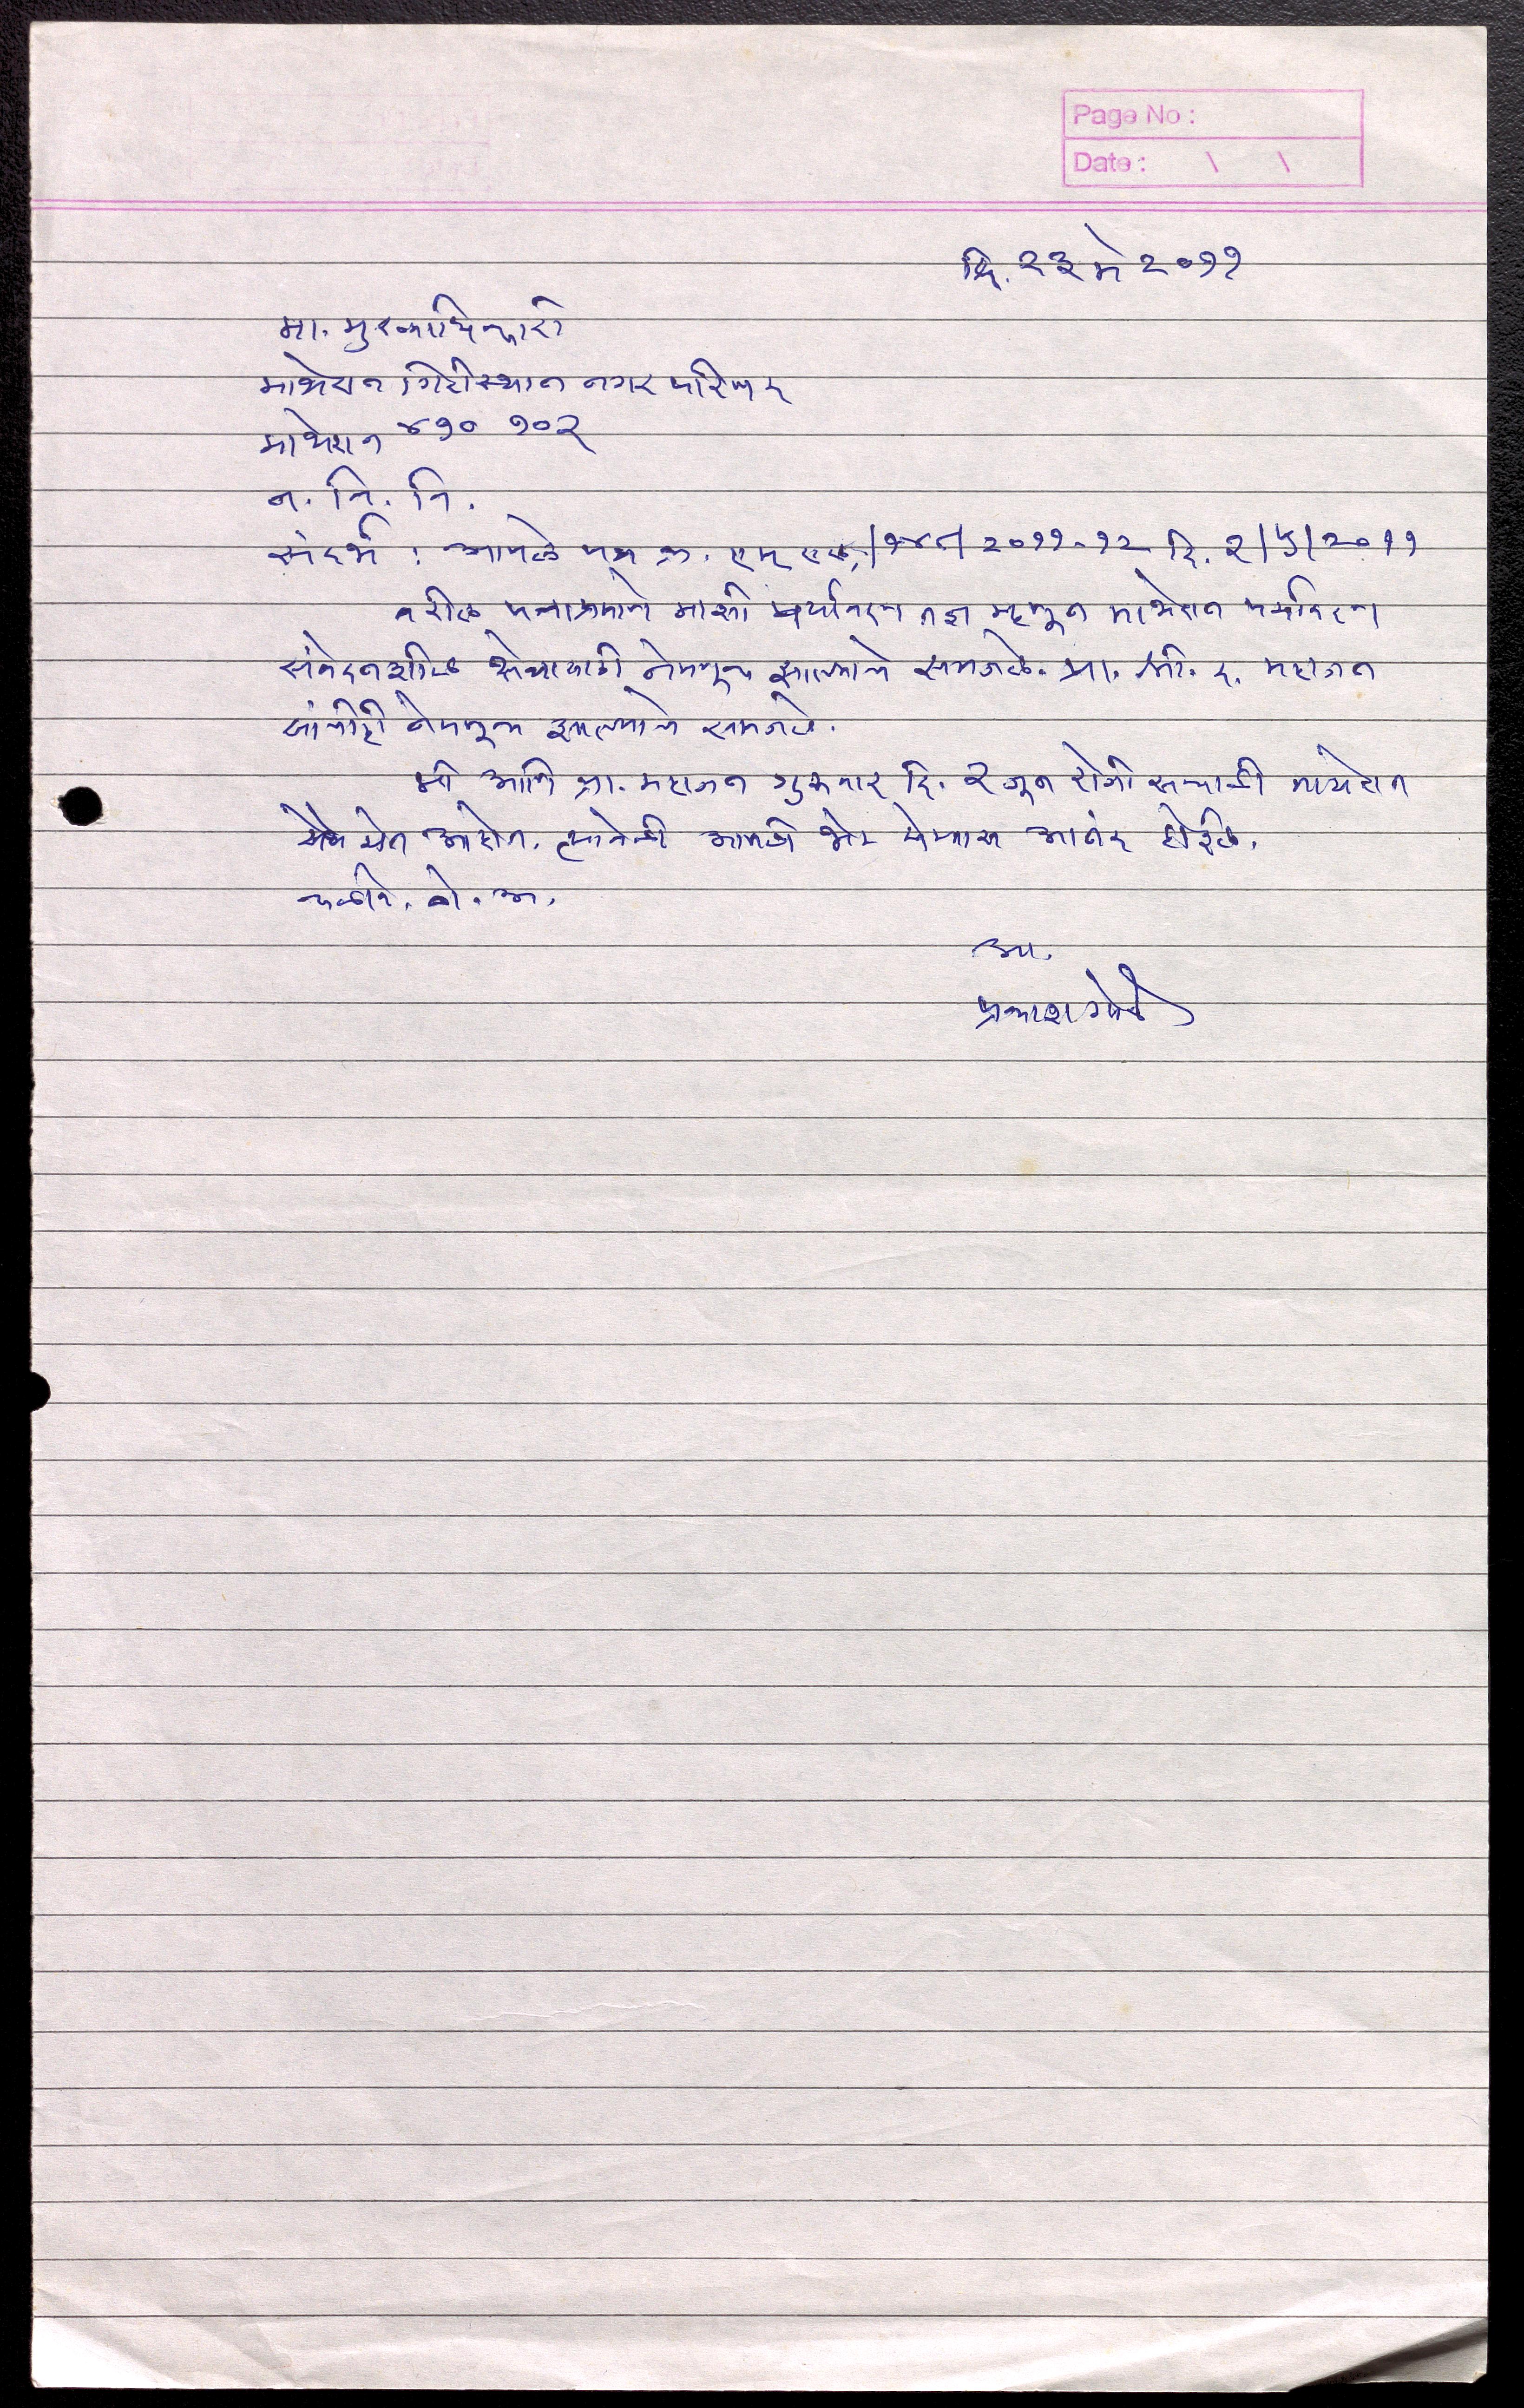 Page No :
Date : \ \
दि. २३ मे २०११
मा. मुख्याधिकारी
माथेरान गिरीस्थान नगर परिषद
माथेरान ४१० १०२
स. न. वि. वि.
संदर्भ : आपले पत्र क्र. एम एच / /२०११-१२ दि. २/५/२०११
वरील पत्राप्रमाणे माझी पर्यावरण तज्ञ म्हणून माथेरान पर्यावरण
संवेदनशील क्षेत्रासाठी नेमणूक झाल्याचे समजले. प्रा. श्री. द. महाजन
यांचीही नेमणूक झाल्याचे समजले.
मी आणि प्रा. महाजन गुरुवार दि. २ जून रोजी सकाळी माथेरान
येथे येत आहोत. त्यावेळी आपली भेट घेण्यास आनंद होईल.
कळावे. लो. अ.
आ.
प्रकाश गोळे